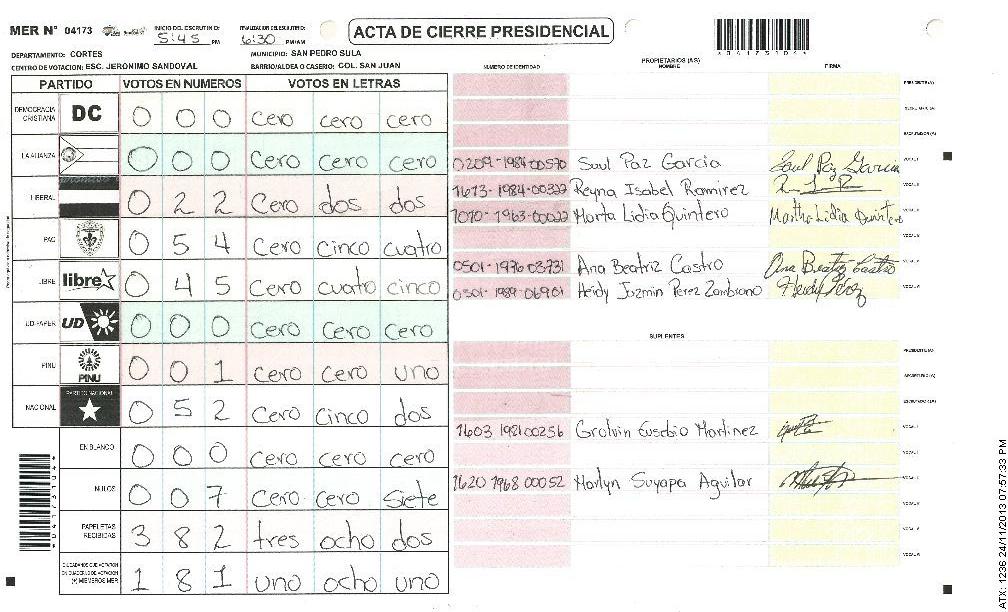 MER Nº 04173 INICIO DEL ESCRUTINIO: 5:45 PM FINALIZACION DEL ESCRUTINIO: 6:30 PM/AM ACTA DE CIERRE PRESIDENCIAL
DEPARTAMENTO: CORTES MUNICIPIO: SAN PEDRO SULA
CENTRO DE VOTACION: ESC. JERONIMO SANDOVAL BARRIO/ALDEA O CASERIO: COL. SAN JUAN
PARTIDO VOTOS EN NUMEROS VOTOS EN LETRAS
DEMOCRACIA CRISTIANA DC 0 0 0 cero cero cero
LA ALIANZA 0 0 0 Cero Cero cero
LIBERAL 0 2 2 Cero dos dos
PAC 0 5 4 Cero cinco cuatro
LIBRE libre 0 4 5 Cero cuatro cinco
UD-FAPER UD 0 0 0 Cero Cero Cero
PINU PINU 0 0 1 Cero Cero uno
NACIONAL PARTIDO NACIONAL 0 5 2 Cero Cinco dos
EN BLANCO 0 0 0 Cero Cero Cero
NULOS 0 0 7 Cero Cero Siete
PAPELETAS RECIBIDAS 3 8 2 tres ocho dos
CIUDADANOS QUE VOTARON EN CUADERNO DE VOTACION (+) MIEMBROS MER 1 8 1 uno ocho uno
PROPIETARIOS (AS)
NUMERO DE IDENTIDAD NOMBRE FIRMA
PRESIDENTE(A)
SECRETARIO(A)
ESCRUTADOR(A)
0209-1984-00570 Saul Paz Garcia Saul Paz Garcia VOCAL I
1613-1984-00322 Reyna Isabel Ramirez VOCAL II
1010-1963-00022 Marta Lidia Quintero Martha Lidia Quintero
0501-1976 03731 Ana Beatriz Castro Ana Beatriz Castro
0501-1989-06901 Heidy Jazmin Perez Zambrano Heidy Perez
SUPLENTES
PRESIDENTE(A)
SECRETARIO(A)
ESCRUTADOR(A)
1603 1981 00256 Grolvin Eusebio Martinez VOCAL I
1620 1968 00052 Marlyn Suyapa Aguilar
ATX: 1236 24/11/2013 07:57:33 PM